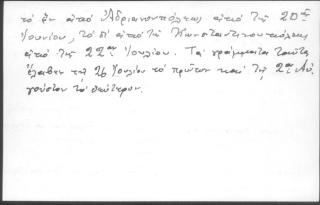 τὸ ἓν ἀπὸ Ἀδριανουπόλεως ἀπὸ τῆς 20ῆς
Ἰουνίου, τὸ δὲ ἀπὸ τῆς Κωνσταντινουπόλεως
ἀπὸ τῆς 22ας Ἰουλίου. Τὰ γράμματα ταῦτα
ἔλαβεν τῇ 26 Ἰουλίου τὸ πρῶτον καὶ τῇ 2ᾳ Αὐ-
γούστου τὸ δεύτερον.